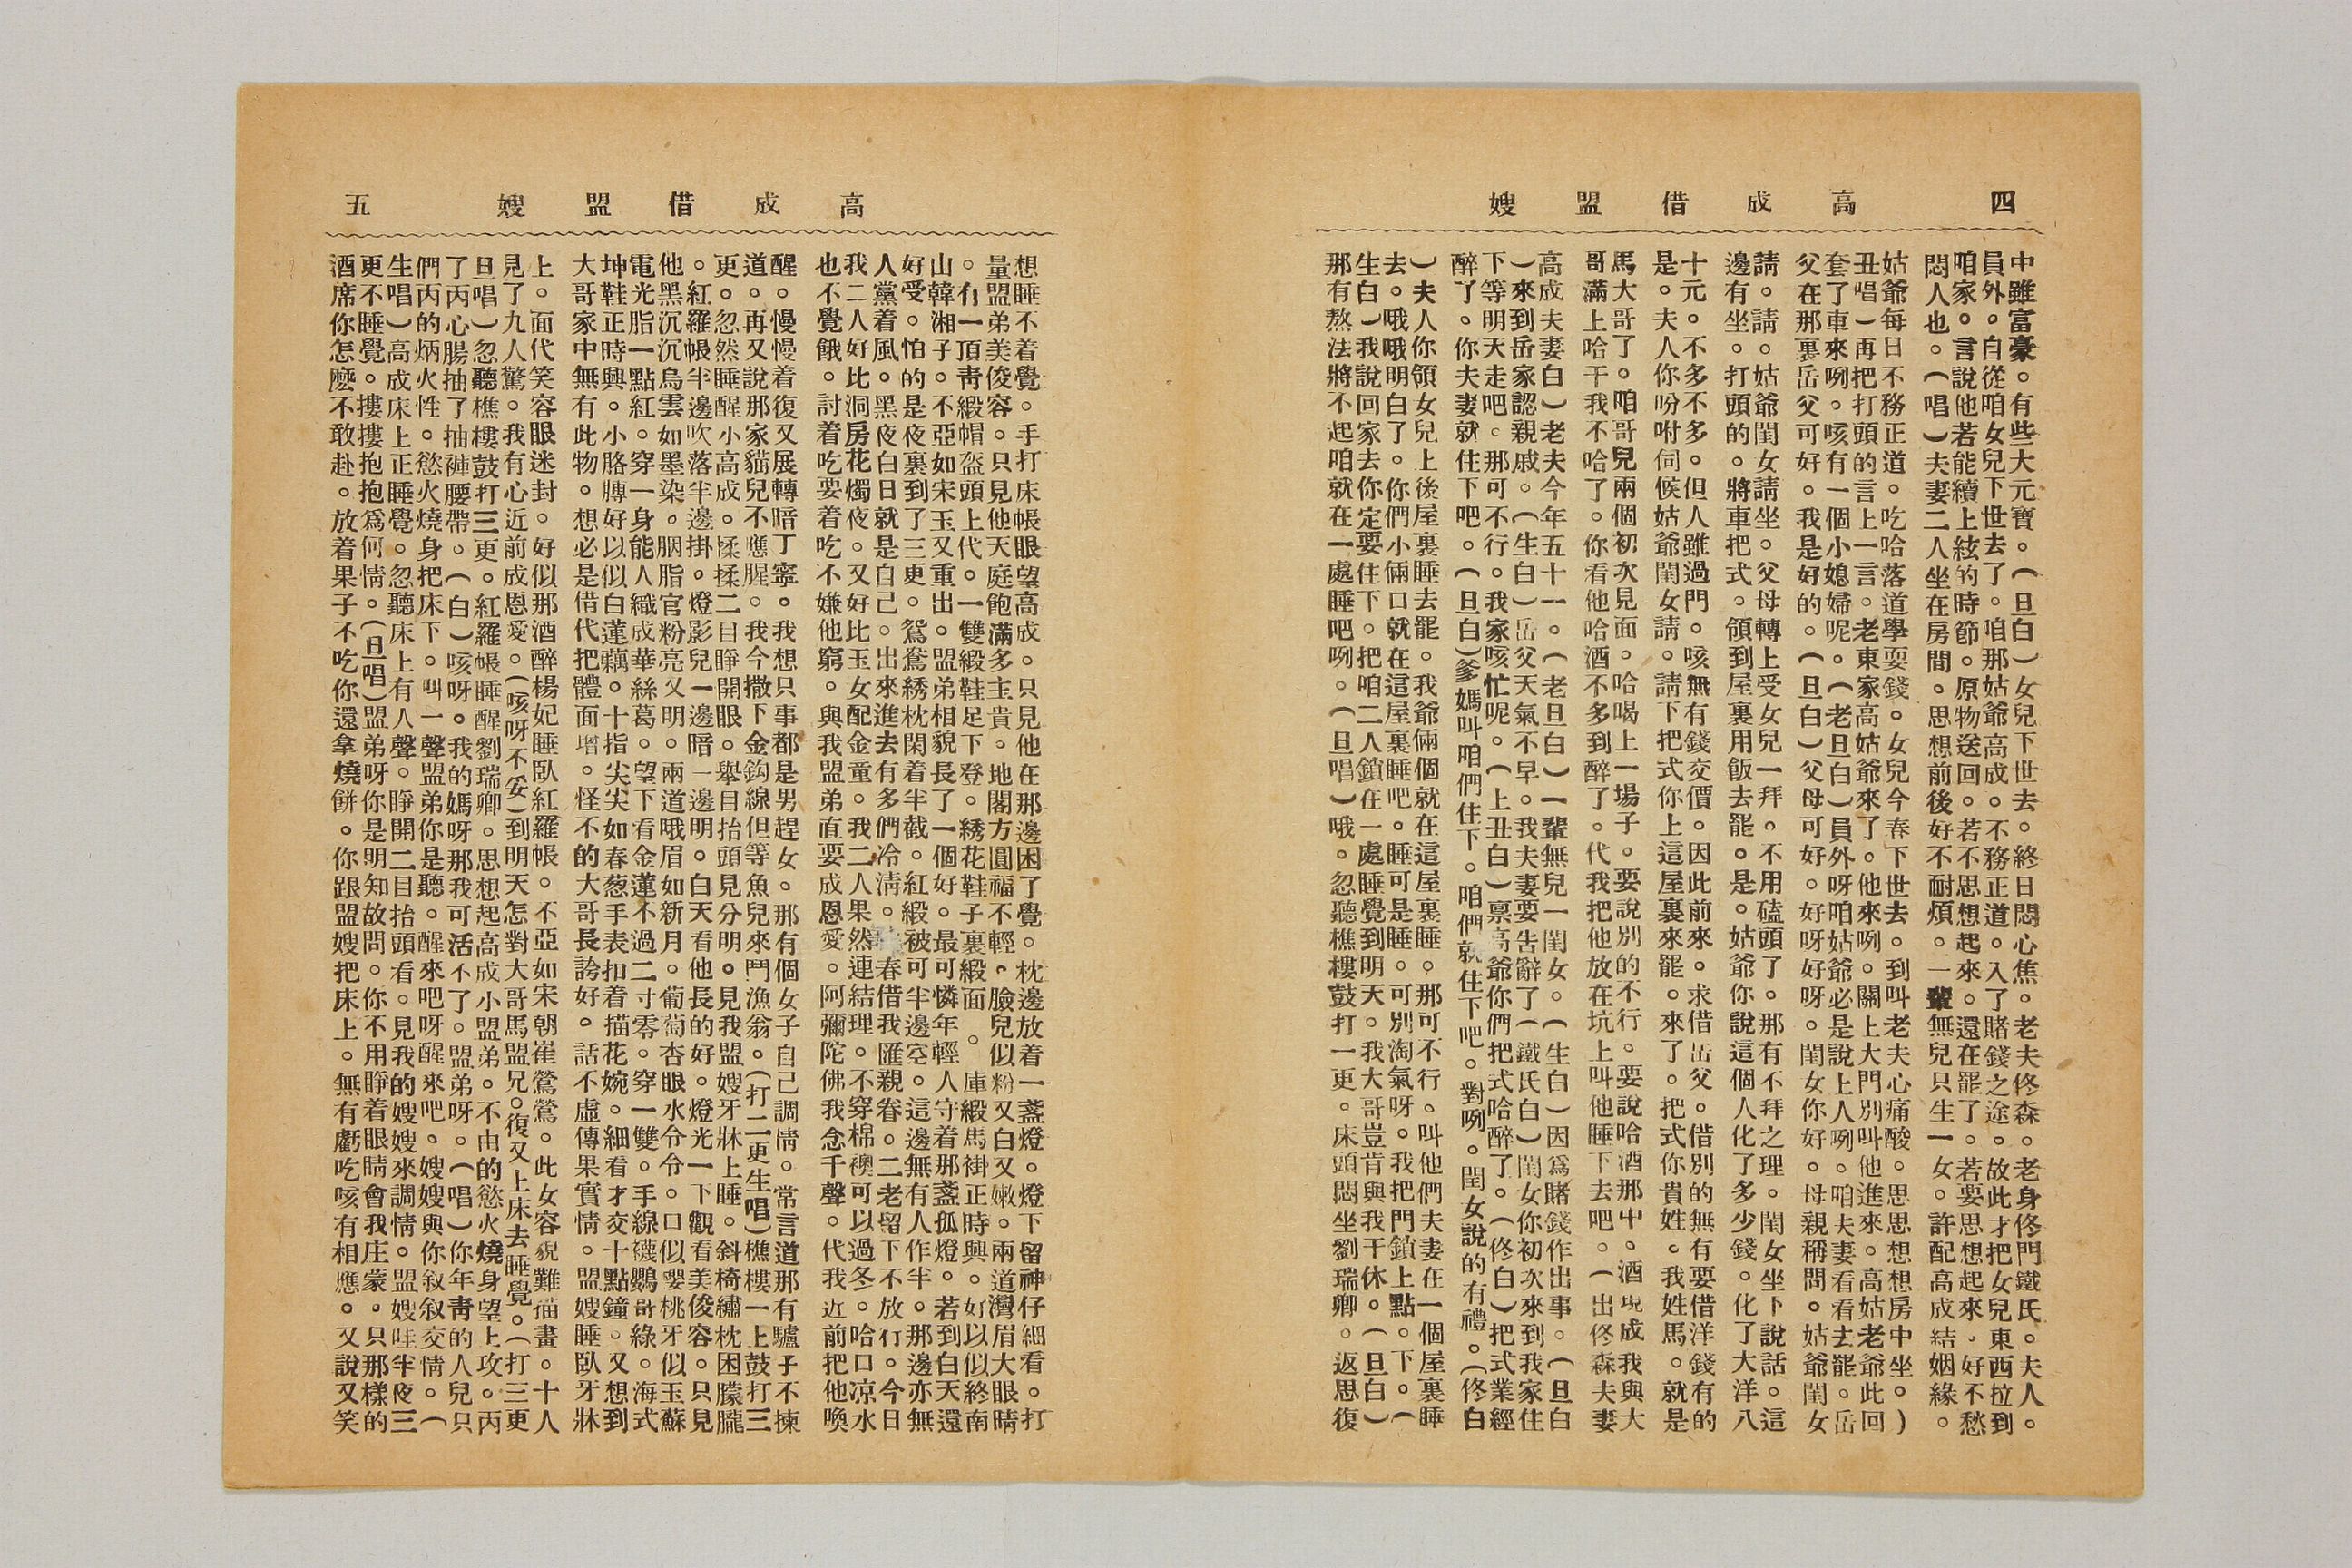 四　高成借盟嫂
中雖富豪。有些大元寶。(旦白)女兒下世去。終日悶心焦。老夫佟森。老身佟門鐵氏。夫人。
員外。自從咱女兒下世去了。咱那姑爺高成。不務正道。入了賭錢之途。故此才把女兒東西拉到
咱家。言說他若能續上絃的時節。原物送回。若不思想起來。還在罷了。若要思想起來，好不愁
悶人也。(唱)夫妻二人坐在房間。思想前後好不耐煩。一輩無兒只生一女。許配高成結姻緣。
姑爺每日不務正道。吃哈落道學耍錢。女兒今春下世去。到叫老夫心痛酸。思思想想房中坐。)
丑唱)再把打頭的言上一言。老東家高姑爺來了。他來咧。關上大門別叫他進來。高姑老爺此回
套了車來咧。咳有一個小媳婦呢。(老旦白)員外呀咱姑爺必是說上人咧。咱夫妻看看去罷。岳
父在那裏岳父可好。我是好的。(旦白)父母可好。好呀好呀。閨女你好。母親稱問。姑爺閨女
請。請。姑爺閨女請坐。父母轉上受女兒一拜。不用磕頭了。那有不拜之理。閨女坐下說話。這
邊有坐。打頭的。將車把式。領到屋裏用飯去罷。是。姑爺你說這個人化了多少錢。化了大洋八
十元。不多不多。但人雖過門。咳無有錢交價。因此前來。求借岳父。借別的無有要借洋錢有的
是。夫人你吩咐伺候姑爺閨女請。請下把式你上這屋裏來罷。來了。把式你貴姓。我姓馬。就是
馬大哥了。咱哥兒兩個初次見面。哈喝上一場子。要說別的不行。要說哈酒那中。酒現成我與大
哥滿上哈干我不哈了。你看他哈酒不多到醉了。代我把他放在坑上叫他睡下去吧。(出佟森夫妻
高成夫妻白)老夫今年五十一。(老旦白)一輩無兒一閨女。(生白)因爲賭錢作出事。(旦白
)來到岳家認親戚。(生白)岳父天氣不早。我夫妻要告辭了(鐵氏白)閨女你初次來到我家住
下等明天走吧。那可不行。我家咳忙呢。(上丑白)禀高爺你們把式哈醉了。(佟白)把式業經
醉了。你夫妻就住下吧。(旦白)爹媽叫咱們住下。咱們就住下吧。對咧。閨女說的有禮。(佟白
)夫人你領女兒上後屋裏睡去罷。我爺倆個就在這屋裏睡。那可不行。叫他們夫妻在一個屋裏睡
去。哦哦明白了。你們小倆口就在這屋裏睡吧。睡可是睡。可別淘氣呀。我把門鎖上點。下。(
生白)我說回家去你定要住下。把咱二人鎖在一處睡覺到明天。我大哥豈肯與我干休。(旦白)
那有熬法將不起咱就在一處睡吧咧。(旦唱)哦。忽聽樵樓鼓打一更。床頭悶坐劉瑞卿。返思復
五　高成借盟嫂
想睡不着覺。手打床帳眼望高成。只見他在那邊困了覺。枕邊放着一盞燈。燈下留神仔細看。打
量盟弟美俊容。只見他天庭飽滿多主貴。地閣方圓福不輕。臉兒似粉又白又嫩。兩道灣眉大眼睛
。有一頂靑緞帽盔頭上代。一雙緞鞋足下登。綉花鞋子裏緞面。庫緞馬褂正時興。好以似終南
山韓湘子。不亞如宋玉又重出。盟弟相貌長了一個好。最可憐年輕人守着那盞孤燈。若到白天還
好受。怕的是夜裏到了三更。鴛鴦綉枕閑着半截。紅緞被可半邊空。這邊無有人作半。那邊亦無
人黨着風。黑夜白日就是自己。出來進去有多們冷淸。春借我匯親眷。二老留下不放行。今日
我二人好比洞房花燭夜。又好比玉女配金童。我二人果然連結理。不穿棉襖可以過冬。哈口凉水
也不覺餓。討着吃要着吃不嫌他窮。與我盟弟直要成恩愛。阿彌陀佛我念千聲。代我近前把他喚
醒。慢慢着復又展轉暗丁寧。我想只事都是男趕女。那有個女子自己調情。常言道那有驢子不揀
道。再又說那家貓兒不應腥。我今撒下金鈎線但等魚兒來鬥漁翁。(打二更生唱)樵樓一上鼓打三
更。忽然睡醒小高成。揉揉二目睜開眼。舉目抬頭見分明。見我盟嫂牙牀上睡。斜椅繡枕困朦朧
。紅羅帳半邊吹落半邊掛。燈影兒一邊暗一邊明。白天看他長的好。燈光一下觀看美俊容。只見
他黑沉沉烏雲如墨染。胭脂官粉亮又明。兩道哦眉如新月。葡萄杏眼水令令。口似櫻桃牙似玉蘇
電光脂一點紅。穿一身能人織成華絲葛。望下看金蓮不過二寸零。穿一雙。手線襪鸚哥綠。海式
坤鞋正時興。小胳膊好以似白蓮藕。十指尖尖如春葱手表扣着描花婉。細看才交十點鐘。又想到
大哥家中無有此物。想必是借代把體面增。怪不的大哥長誇好。話不虛傳果實情。盟嫂睡臥牙牀
上。面代笑容眼迷封。好似那酒醉楊妃睡臥紅羅帳。不亞如宋朝崔鶯鶯。此女容貌難描畫。十人
見了九人驚。我有心近前成恩愛。(咳呀不妥)到明天怎對大哥馬盟兄。復又上床去睡覺。(打三更
旦唱)忽聽樵樓鼓打三更。紅羅帳睡醒劉瑞卿。思想起高成小盟弟。不由的慾火燒身望上攻。丙
了丙心腸抽了抽褲腰帶。(白)咳呀。我的媽呀那我可活不了。盟弟呀。(唱)你年靑的人兒只
們丙的炳火性。慾火燒身把床下。叫一聲盟弟你是聽。醒來吧呀醒來吧。嫂嫂與你叙叙交情。(
生唱)高成床上正睡覺。忽聽床上有人聲。睜開二目抬頭看。見我的嫂嫂來調情。盟嫂哇半夜三
更不睡覺。摟摟抱抱爲何情。(旦唱)盟弟呀你是明知故問。你不用睜着眼睛會我庄蒙。只那樣的
酒席你怎麽不敢赴。放着果子不吃你還拿燒餅。你跟盟嫂把床上。無有虧吃咳有相應。又說又笑